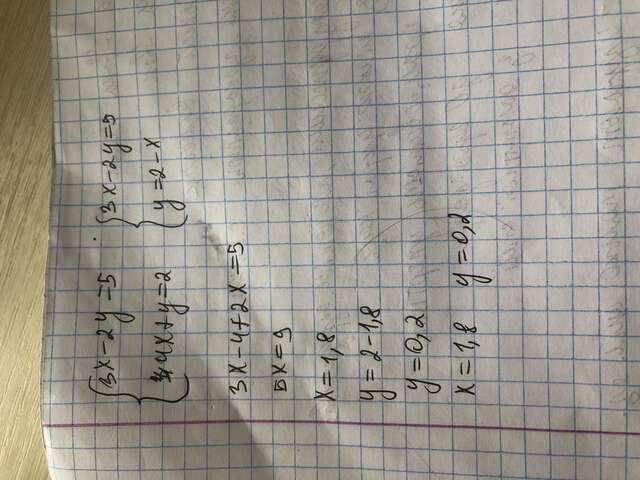 {3x-2y=5 {3x-2y=5
{4x+y=2 {y=2-x
3x-4+2x=5
5x=9
x=1,8
y=2-1,8
y=0,2
x=1,8 y=0,2